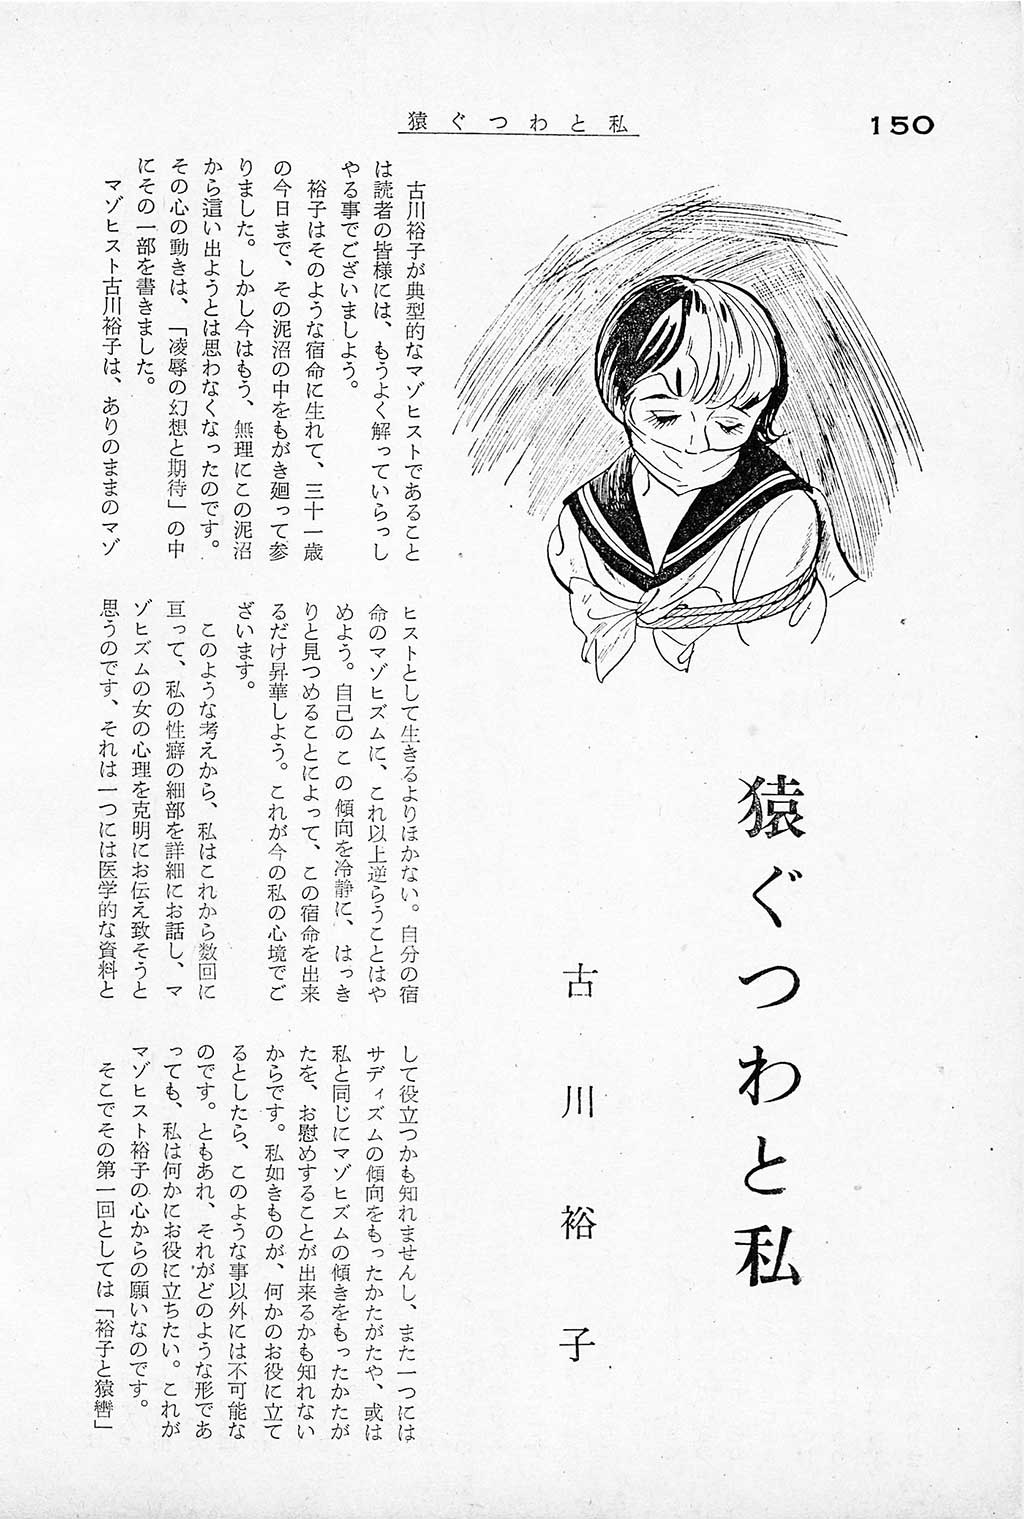 猿ぐつわと私
150
猿ぐつわと私
古川裕子
古川裕子が典型的なマゾヒストであること
は読者の皆様には、もうよく解っていらっし
やる事でございましよう。
裕子はそのような宿命に生れて、三十一歳
の今日まで、その泥沼の中をもがき廻って参
りました。しかし今はもう、無理にこの泥沼
から這い出ようとは思わなくなったのです。
その心の動きは、「凌辱の幻想と期待」の中
にその一部を書きました。
マゾヒスト古川裕子は、ありのままのマゾ
ヒストとして生きるよりほかない。自分の宿
命のマゾヒズムに、これ以上逆らうことはや
めよう。自己のこの傾向を冷静に、はっき
りと見つめることによって、この宿命を出来
るだけ昇華しよう。これが今の私の心境でご
ざいます。
このような考えから、私はこれから数回に
亘って、私の性癖の細部を詳細にお話し、マ
ゾヒズムの女の心理を克明にお伝え致そうと
思うのです、それは一つには医学的な資料と
して役立つかも知れませんし、また一つには
サディズムの傾向をもったかたがたや、或は
私と同じにマゾヒズムの傾きをもったかたが
たを、お慰めすることが出来るかも知れない
からです。私如きものが、何かのお役に立て
るとしたら、このような事以外には不可能な
のです。ともあれ、それがどのような形であ
っても、私は何かにお役に立ちたい。これが
マゾヒスト裕子の心からの願いなのです。
そこでその第一回としては「裕子と猿轡」